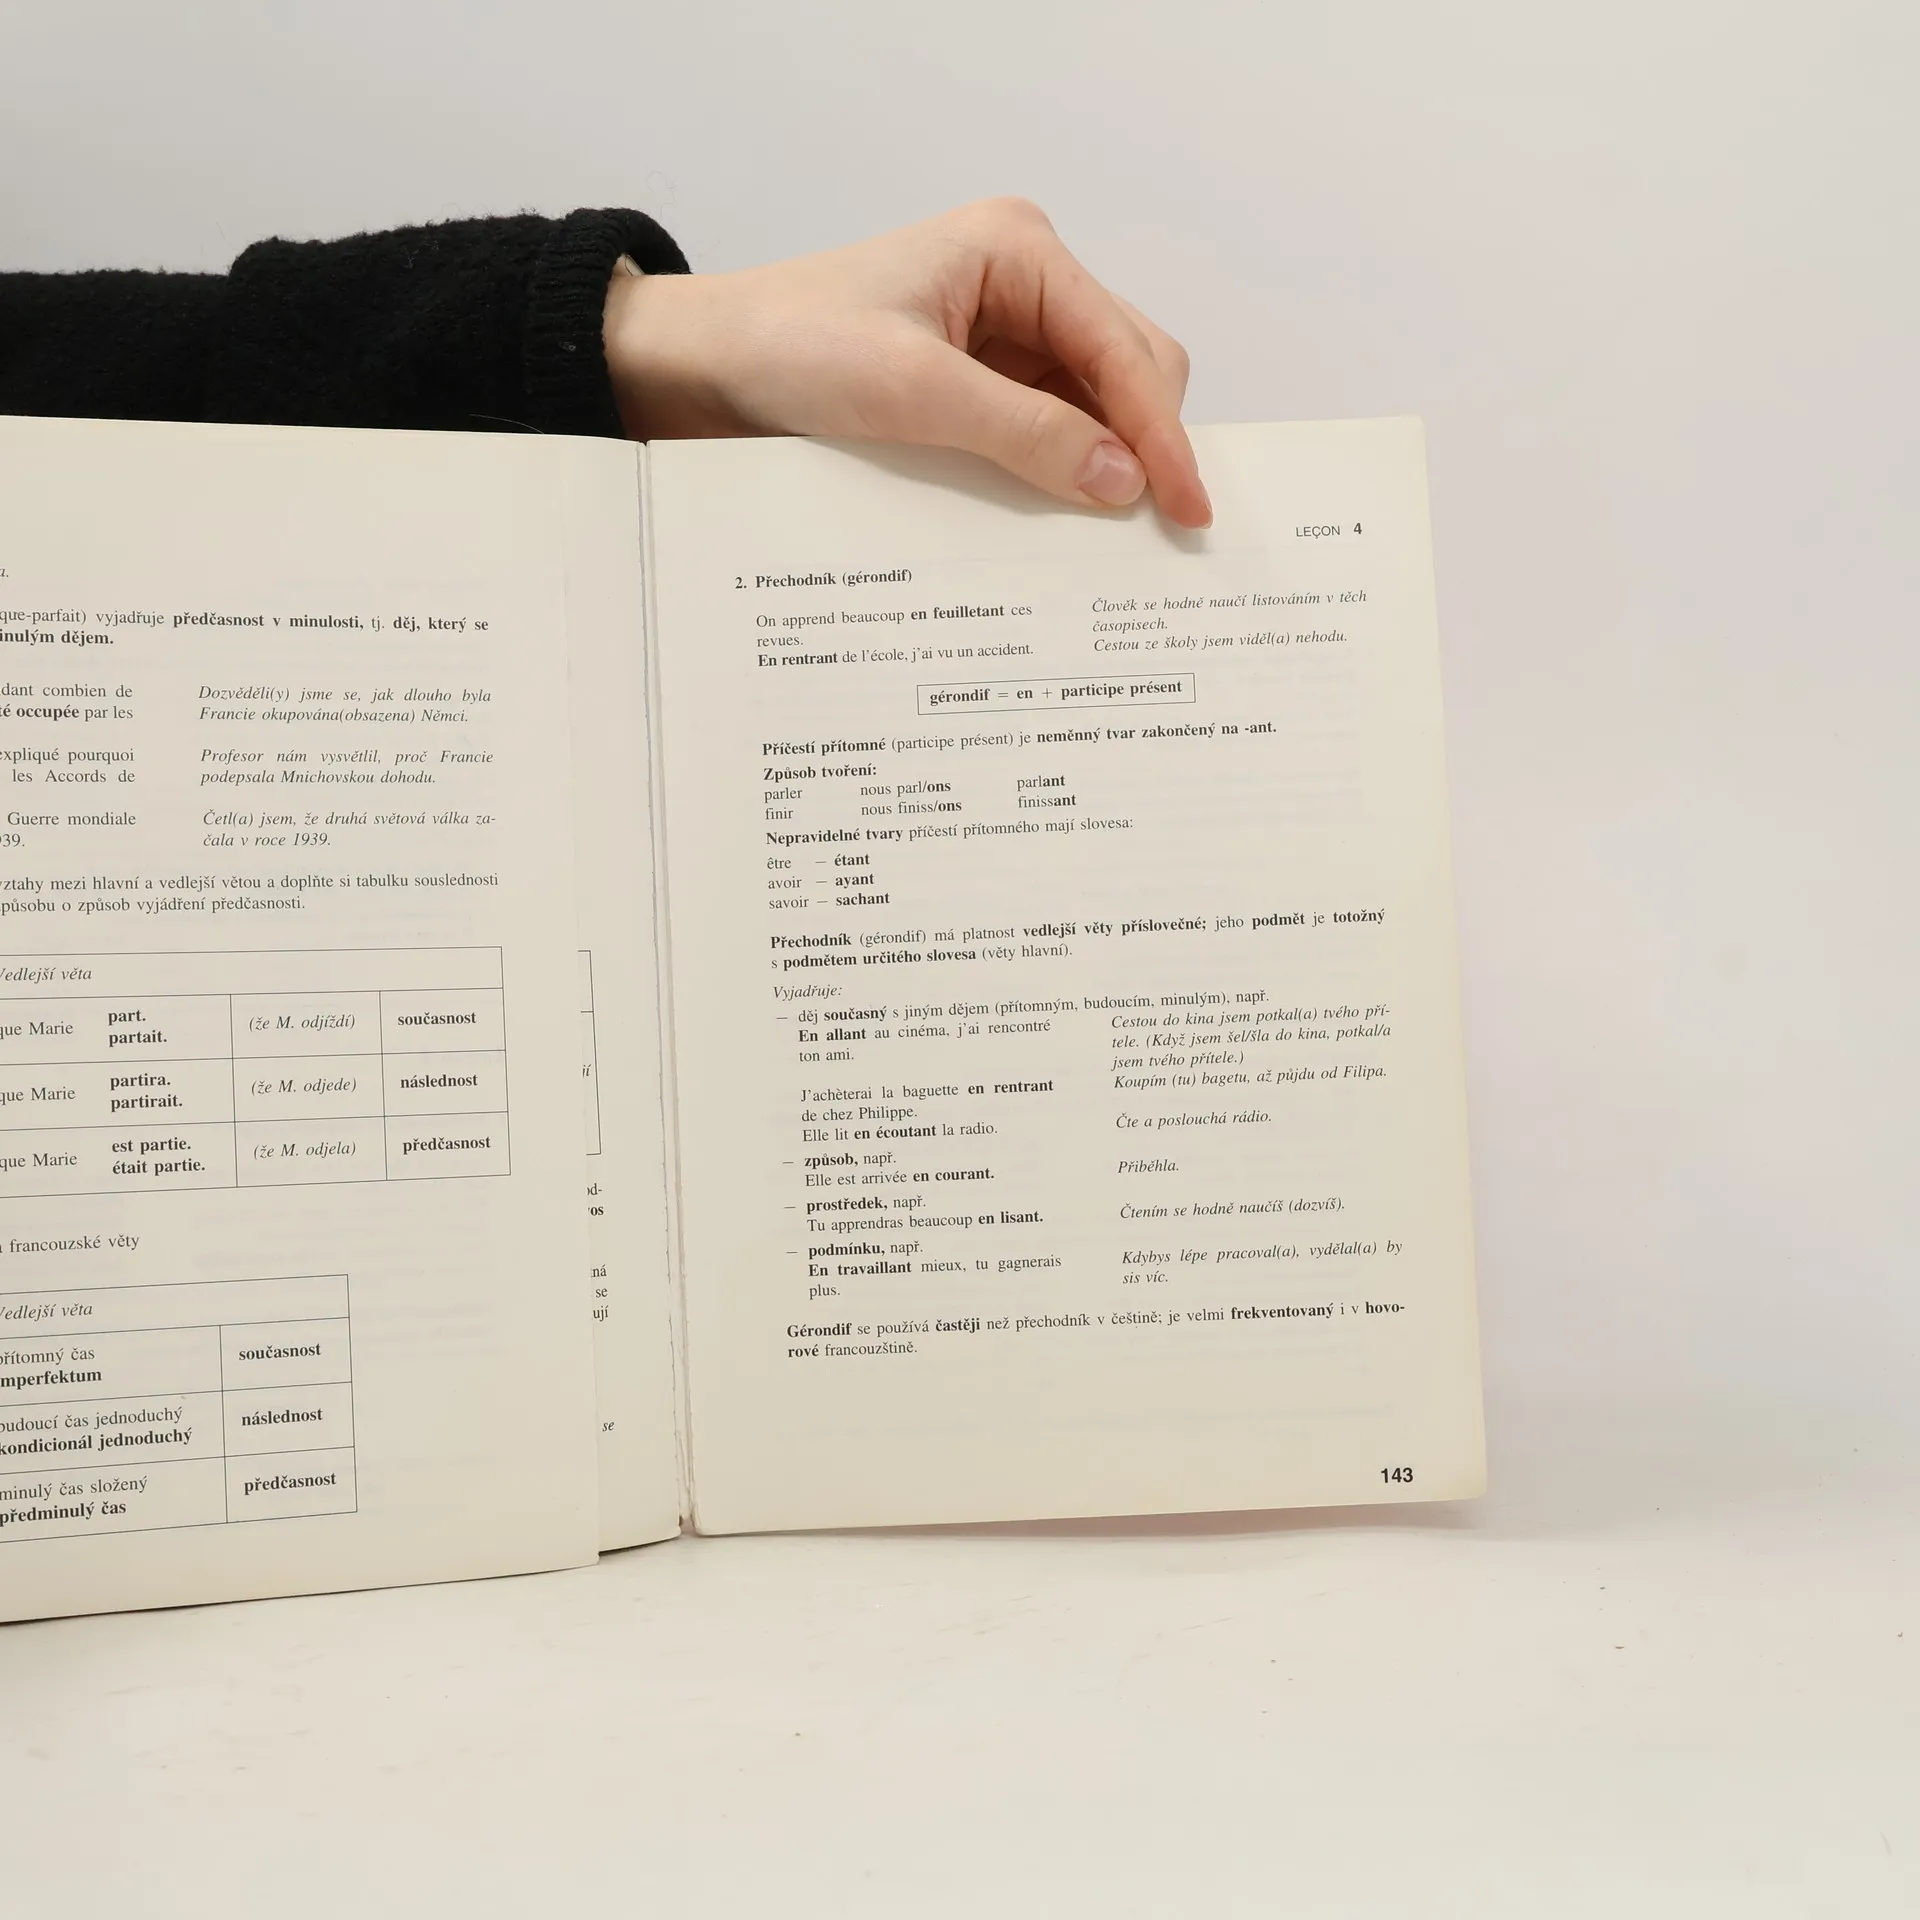 a.
que-parfait) vyjadřuje předčasnost v minulosti, tj. děj, který se
inulým dějem.
dant combien de
Dozvěděli(y) jsme se, jak dlouho byla
té occupée par les
Francie okupována(obsazena) Němci.
expliqué pourquoi
Profesor nám vysvětlil, proč Francie
les Accords de
podepsala Mnichovskou dohodu.
Guerre mondiale
Četl(a) jsem, že druhá světová válka za-
39.
čala v roce 1939.
vztahy mezi hlavní a vedlejší větou a doplňte si tabulku souslednosti
působu o způsob vyjádření předčasnosti.
Vedlejší věta
que Marie
part.
partait.
(že M. odjíždí)
současnost
que Marie
partira.
partirait.
(že M. odjede)
následnost
que Marie
est partie.
était partie.
(že M. odjela)
předčasnost
francouzské věty
Vedlejší věta
přítomný čas
imperfektum
současnost
budoucí čas jednoduchý
kondicionál jednoduchý
následnost
minulý čas složený
předminulý čas
předčasnost
jí
od-
vos
ná
se
ují
se
LEÇON 4
2. Přechodník (gérondif)
On apprend beaucoup en feuilletant ces
revues.
Člověk se hodně naučí listováním v těch
časopisech.
En rentrant de l'école, j'ai vu un accident.
Cestou ze školy jsem viděl(a) nehodu.
gérondif = en + participe présent
Příčestí přítomné (participe présent) je neměnný tvar zakončený na -ant.
Způsob tvoření:
parler nous parl/ons parlant
finir nous finiss/ons finissant
Nepravidelné tvary příčestí přítomného mají slovesa:
être – étant
avoir – ayant
savoir – sachant
Přechodník (gérondif) má platnost vedlejší věty příslovečné; jeho podmět je totožný
s podmětem určitého slovesa (věty hlavní).
Vyjadřuje:
– děj současný s jiným dějem (přítomným, budoucím, minulým), např.
En allant au cinéma, j'ai rencontré
ton ami.
Cestou do kina jsem potkal(a) tvého pří-
tele. (Když jsem šel/šla do kina, potkal/a
jsem tvého přítele.)
J'achèterai la baguette en rentrant
de chez Philippe.
Koupím (tu) bagetu, až půjdu od Filipa.
Elle lit en écoutant la radio.
Čte a poslouchá rádio.
– způsob, např.
Elle est arrivée en courant.
Přiběhla.
– prostředek, např.
Tu apprendras beaucoup en lisant.
Čtením se hodně naučíš (dozvíš).
– podmínku, např.
En travaillant mieux, tu gagnerais
plus.
Kdybys lépe pracoval(a), vydělal(a) by
sis víc.
Gérondif se používá častěji než přechodník v češtině; je velmi frekventovaný i v hovo-
rové francouzštině.
143